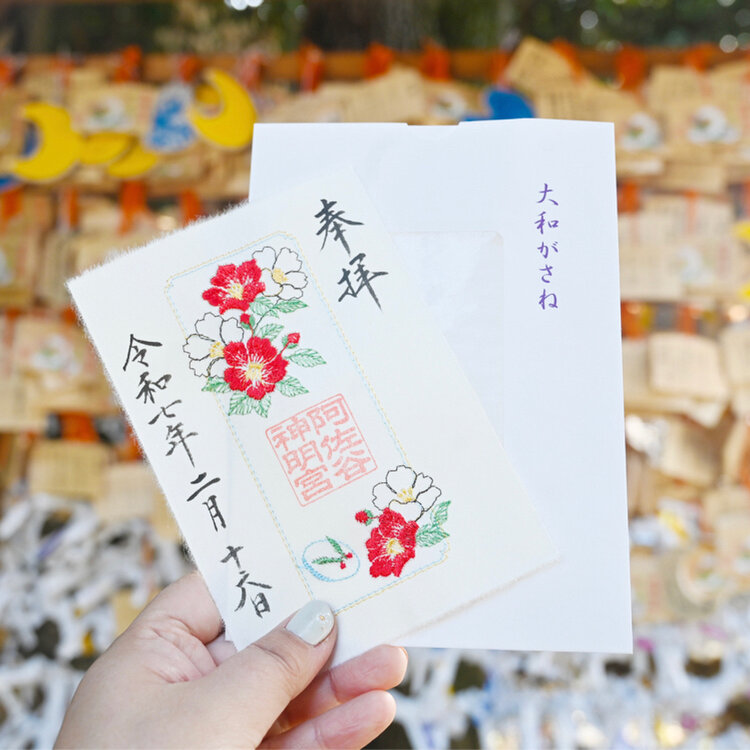 奉拝
阿佐谷
神明宮
令和七年二月十六日
大和がさね